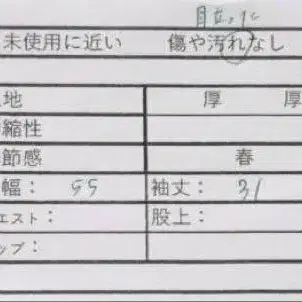 目立った
未使用に近い 傷や汚れなし
地 厚 厚
縮性
節感 春
幅: 55 袖丈: 31
エスト: 股上:
ップ: